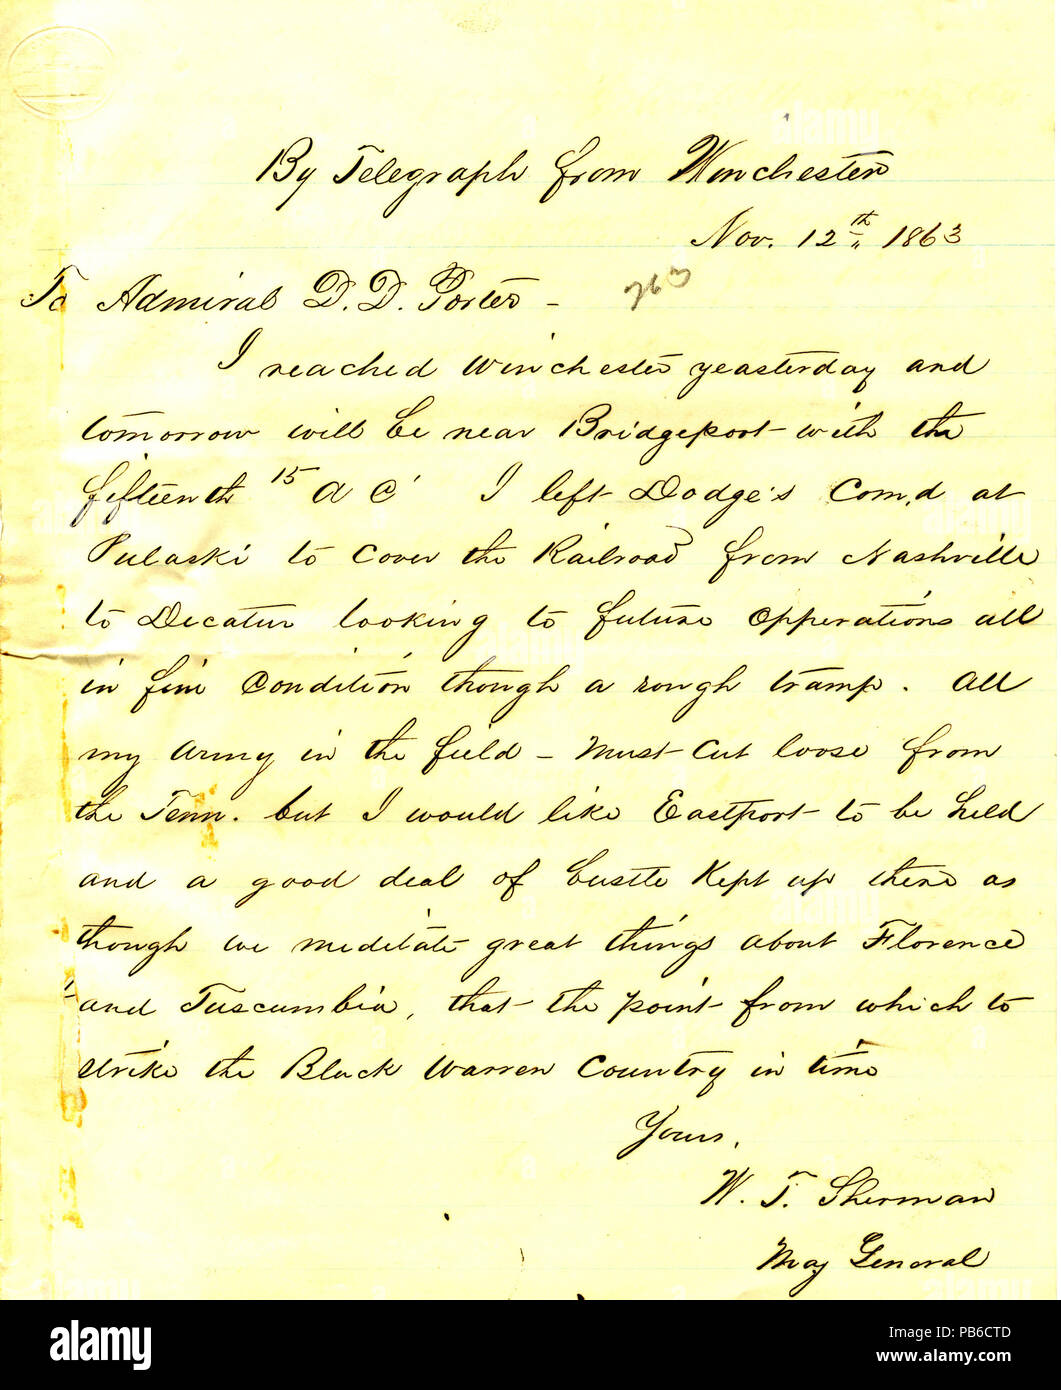 By Telegraph from Winchester
Nov. 12th 1863
To Admiral D. D. Porter -
263
I reached Winchester yeasterday and
tomorrow will be near Bridgeport with the
fifteenth 15 A C I left Dodge's Com,d at
Pulaski to cover the Railroad from Nashville
to Decatur looking to future opperations all
in fine condition though a rough tramp. All
my army in the field - Must cut loose from
the Tenn. but I would like Eastport to be held
and a good deal of bustle kept up there as
though we meditate great things about Florence
and Tuscumbia, that the point from which to
strike the Black Warren Country in time
Yours,
W. T. Sherman
Maj General
alamy
Image ID: PB6CTD
www.alamy.com